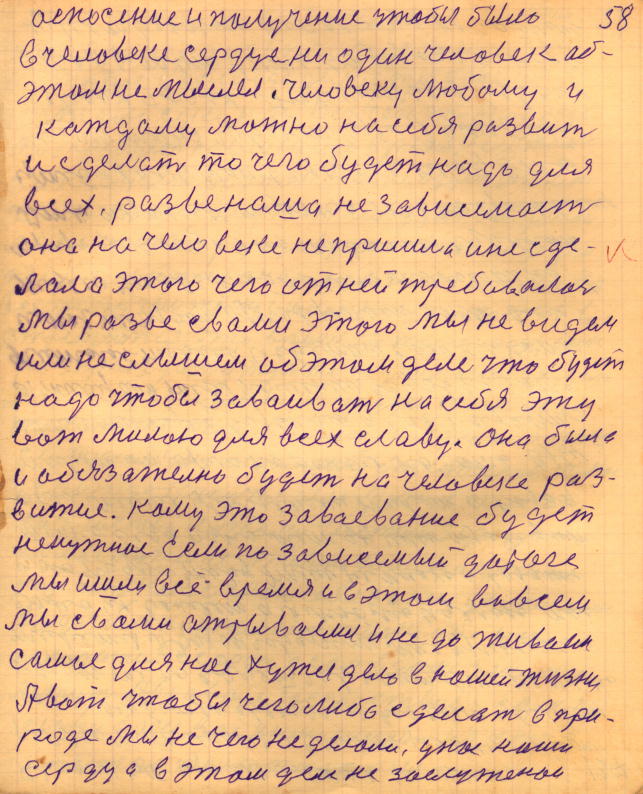 оспосение и получение чтобы было 58
в человеке сердце ни один человек об-
этом не мыслел. Человеку любому и
каждому можно на себя развит
и сделат то чего будет надо для
всех. развенаша не зависемаст
она на человеке непришла инесде-
лала этого чего от ней требовалас
мы разве свами этого мы не видем
или неслышем об этом деле что будет
надо чтобы заваиват на себя эту
вот милою для всех славу. она была
и обязателно будет на человеке раз-
витие. кому это заваевание будет
ненужное Если по зависемый дароге
мы шли всё время и в этом во всем
мы свами
самые для нас хужи дело в нашей жизни
А вот чтобы чеголибо сделат в при-
роде мы не чего неделали, у нас наши
сердца в этом деле не заслуженое